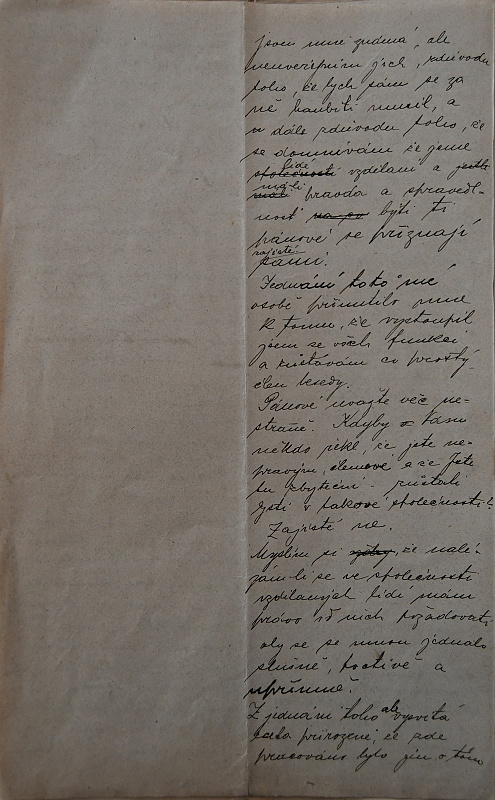 jsou mně známá, ale
neuveřejním jich, z důvodu
toho, že bych sám se za
ně hanbiti musil, a
z dále z důvodu toho, že
se domnívám že jsme
společnosti lidé vzdělaní a jestli
máli má-li pravda a spravedl-
nost na po býti ti
pánové se přiznají
zajisté sami.
Jednání toto mé
osobě přinutilo mne
k tomu, že vystoupil
jsem se všech funkcí
a zůstávám co prostý
člen besedy.
Pánové uvažte věc ne-
straně. Kdyby z Vás
někdo řekl, že jste ne-
pravým, členem a že jste
tu zbyteční - zůstali
jste v takové společnosti?
Zajisté ne.
Myslím si vždy, že nalé-
zám-li se ve společnosti
vzdělaných lidí mám
právo od nich požadovati
aby se se mnou jednalo
slušně, poctivě a
upřímně.
Z jednání toho ale vysvítá
zcela přirozeně, že zde
pracováno bylo jen o tom